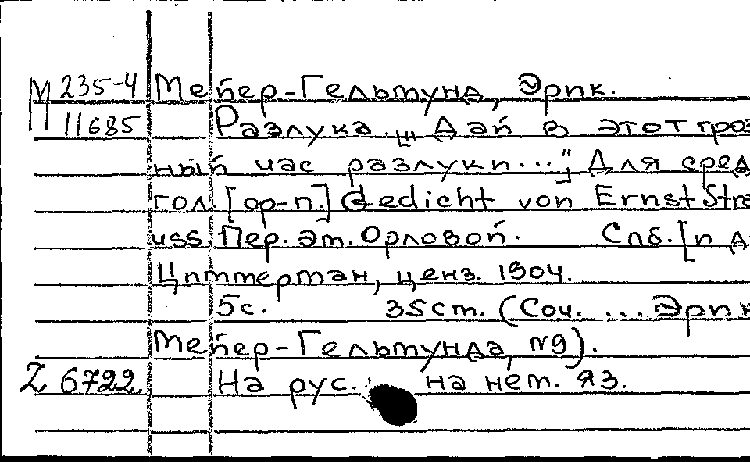 М 235-4 Мейер-Гельмунд, Эрик.
11685 Разлука. "Дай в этот гроз
ный час разлуки..."; Для сред.
гол. [ор-п.] Gedicht von Ernst Stra
uss. Пер. Эм. Орловой. Спб. [п д
Циммерман, ценз. 1904.
5с. 35см. (Соч. ... Эрик
Мейер-Гельмунда, №9).
Z 6722 На рус. на нем. яз.